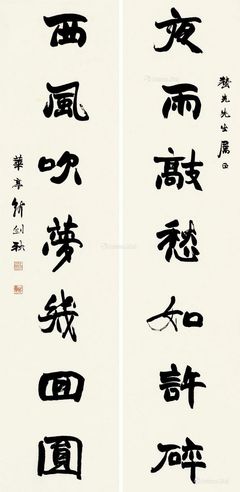 夜雨敲愁如許碎
先先生屬正
西風吹夢幾回圓
華亭 劍秋